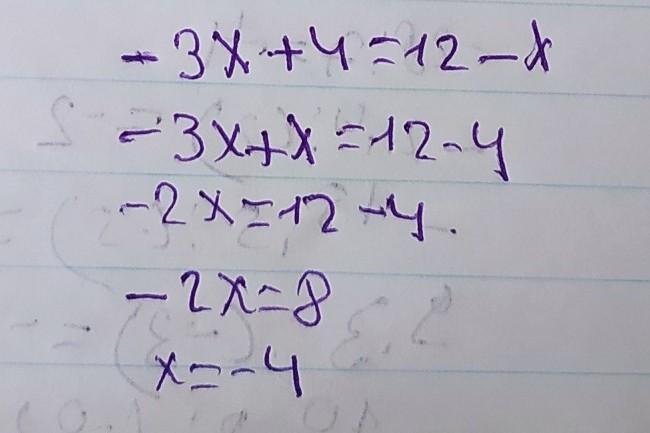 -3x+4=12-x
-3x+x=12-4
-2x=12-4.
-2x=8
x=-4